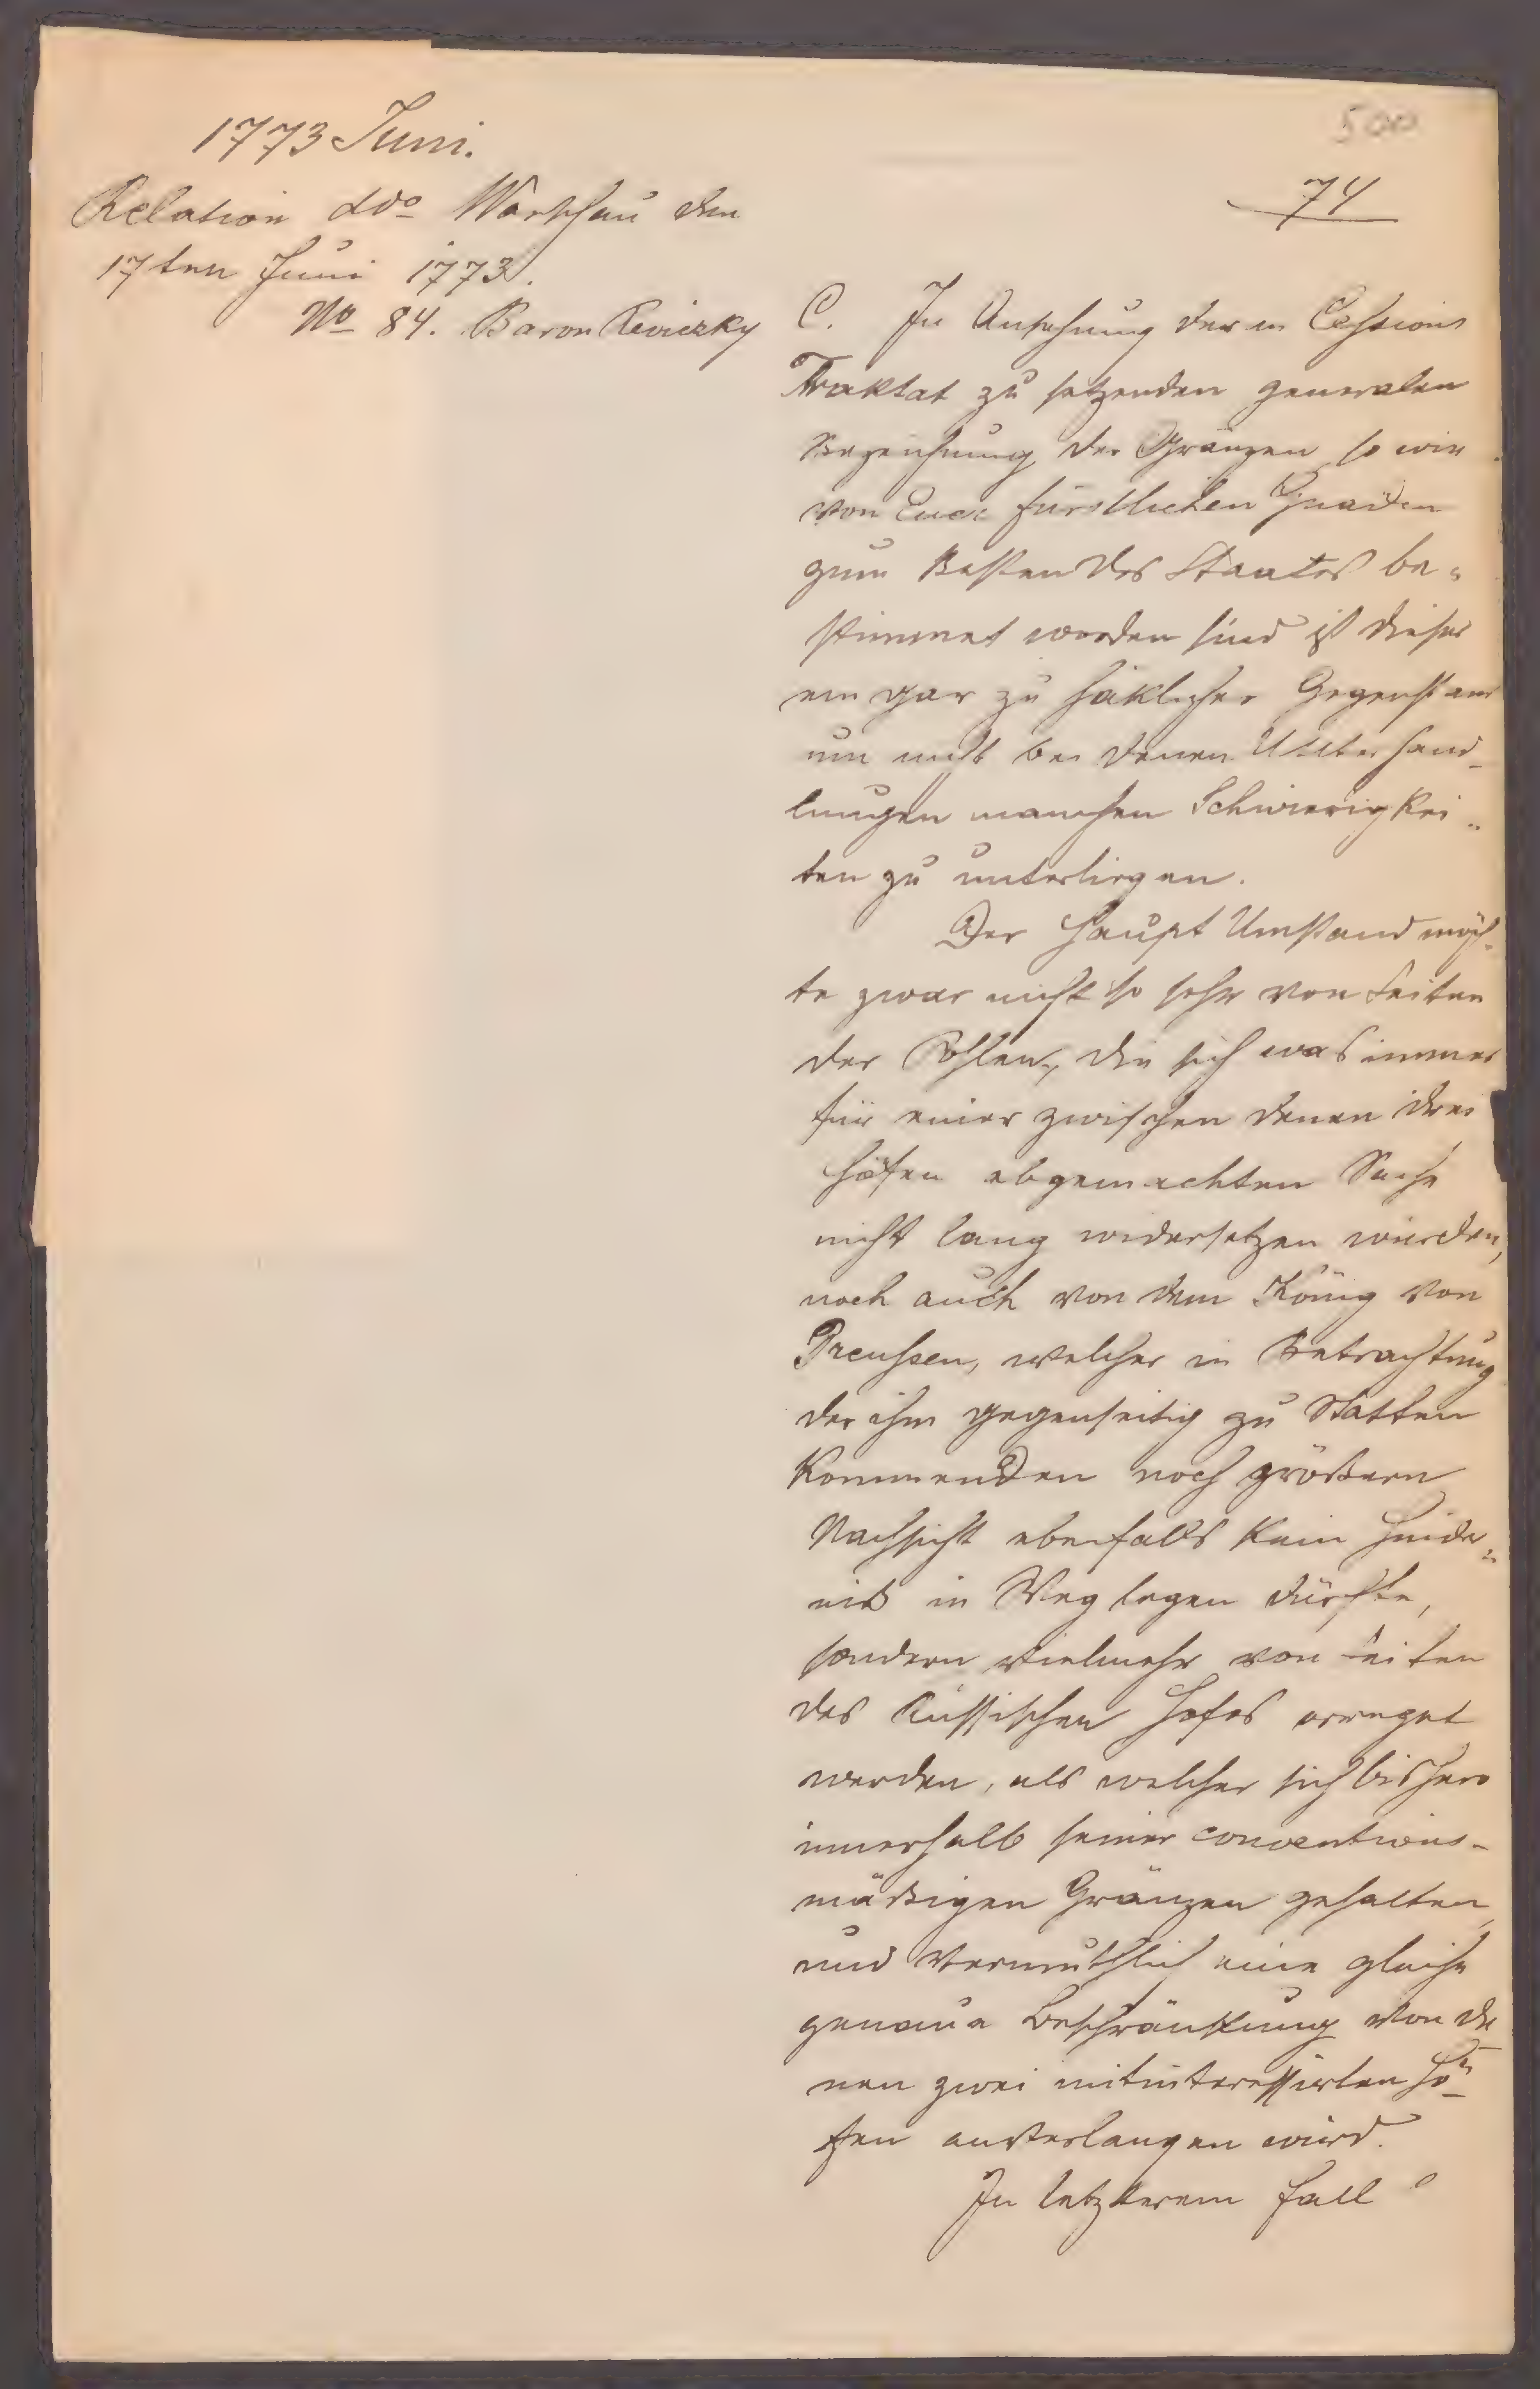 1773 Juni.
500
74
Relation ddo Warschau den
17ten Juni 1773.
No 84. Baron Reviczky
C. In Ansehung der in Cessions
Traktat zu setzenden generalen
Bezeichnung der Gränzen so wie
von Euer fürstlichen Gnaden
zum Besten des Staates be„
stimmet worden sind ist dieser
ein gar zu häklicher Gegenstand
um nicht bei denen Unterhand-
lungen manchen Schwierigkei„
ten zu unterliegen.
Der Haupt Umstand möch-
te zwar nicht so sehr von Seiten
der Pohlen, die sich was immer
für einer zwischen denen drei
Höfen abgemachten Sache
nicht lang widersetzen würden,
noch auch von dem König von
Preussen, welcher in Betrachtung
der ihm gegenseitig zu Statten
kommenden noch größern
Nachsicht ebenfalls kein Hinder„
niß in Weg legen dürfte,
sondern vielmehr von Seiten
des Russischen Hofes erreget
werden, als welcher sich bishero
innerhalb seiner conventions-
mäßigen Gränzen gehalten,
und vermuthlich eine gleiche
genaue Beschränkung von de-
nen zwei mitinteressirten Hö-
fen anverlangen wird.
In letzterem Fall